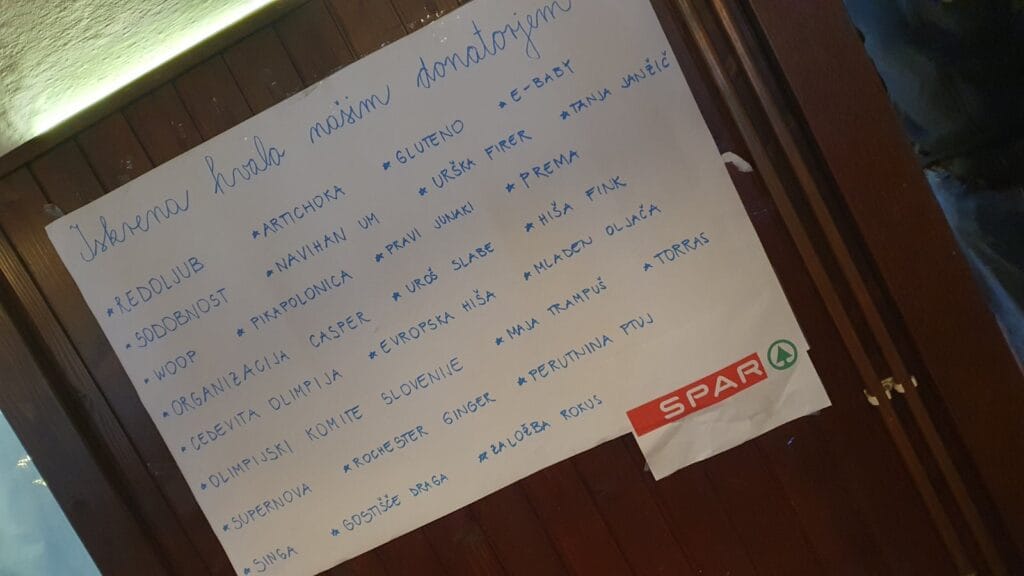 Iskrena hvala našim donatorjem
* REDOLJUB * ARTICHOKA * GLUTENO * E-BABY
* SODOBNOST * NAVIHAN UM * URŠKA FIRER * TANJA JANŽIČ
* WOOP * PIKAPOLONICA * PRAVI JUNAKI * PREMA
* ORGANIZACIJA CASPER * UROŠ SLABE * HIŠA FINK
* CEDEVITA OLIMPIJA * EVROPSKA HIŠA * MLADEN OLJAČA
* OLIMPIJSKI KOMITE SLOVENIJE * MAJA TRAMPUŠ * TORRAS
* SUPERNOVA * ROCHESTER GINGER * PERUTNINA PTUJ
* SINGA * GOSTIŠČE DRAGA * ZALOŽBA ROKUS
SPAR